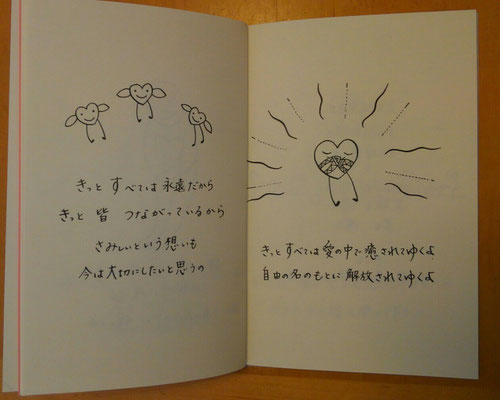 きっと すべては 永遠だから
きっと 皆 つながっているから
さみしいという想いも
今は大切にしたいと思うの
きっと すべては 愛の中で 癒されてゆくよ
自由の名のもとに 解放されてゆくよ